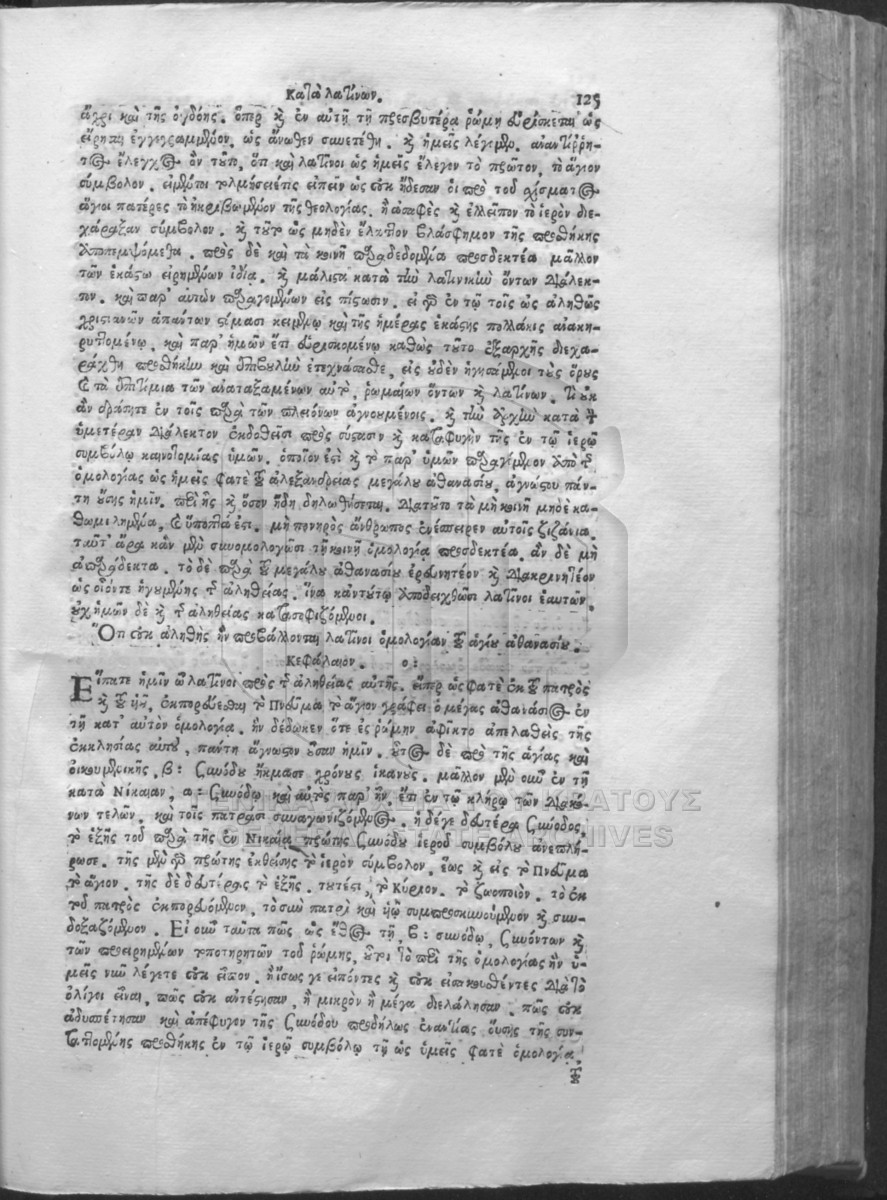 Κατὰ λατίνων. 125
ἄχρι καὶ τῆς ὀγδόης. ὅπερ καὶ ἐν αὐτῇ τῇ πρεσβυτέρα ῥώμῃ εὑρίσκεται ὡς
εἴρηται ἐγγεγραμμένον, ὡς ἄνωθεν συνετέθη. καὶ ἡμεῖς λέγομεν. ἀναντίρρη-
τος ἔλεγχος ὂν τοῦτο, ὅτι καὶ λατῖνοι ὡς ἡμεῖς ἔλεγον τὸ πρῶτον, τὸ ἅγιον
σύμβολον. εἰμήτοι τολμήσειέτις εἰπεῖν ὡς οὐκ ᾔδεσαν οἱ πρὸ τοῦ σχίσματος
ἅγιοι πατέρες τὸ ἠκριβωμένον τῆς θεολογίας. ἢ ἀσαφὲς καὶ ἐλλεῖπον τὸ ἱερὸν διε-
χάραξαν σύμβολον. καὶ τοῦτο ὡς μηδὲν ἔλαττον βλάσφημον τῆς προσθήκης
ἀποπεμψόμεθα. πρὸς δὲ καὶ τὰ κοινῇ παραδεδομένα προσδεκτέα μᾶλλον
τῶν ἑκάστῳ εἰρημένων ἰδία. καὶ μάλιστα κατὰ τὴν λατινικὴν ὄντων διάλεκ-
τον. καὶ παρ' αὐτῶν παραγομένων εἰς πίστωσιν. εἰ γὰρ ἐν τῷ τοῖς ὡς ἀληθῶς
χριστιανῶν ἁπάντων στόμασι κειμένῳ καὶ τῆς ἡμέρας ἑκάστης πολλάκις ἀνακη-
ρυττομένῳ, καὶ παρ' ἡμῶν ἔτι εὑρισκομένῳ καθὼς τοῦτο ἐξαρχῆς διεχα-
ράχθη προσθήκην καὶ ἐπιβουλὴν ἐτεχνάσασθε, εἰς οὐδὲν ἡγησάμενοι τοὺς ὅρους
καὶ τὰ ἐπιτίμια τῶν ἀναταξαμένων αὐτό, ῥωμαίων ὄντων καὶ λατίνων. τί οὐκ
ἂν δράσητε ἐν τοῖς παρὰ τῶν πλειόνων ἀγνοουμένοις. καὶ τὴν ἀρχὴν κατὰ τὴν
ὑμετέραν διάλεκτον ἐκδοθεῖσι πρὸς σύστασιν καὶ καταφυγὴν τῆς ἐν τῷ ἱερῷ
συμβόλῳ καινοτομίας ὑμῶν. ὁποῖον ἐστὶ καὶ τὸ παρ' ὑμῶν παραγόμενον ἀπὸ τῆς
ὁμολογίας ὡς ἡμεῖς φατὲ τοῦ ἀλεξανδρείας μεγάλου ἀθανασίου, ἀγνώστου πάν-
τη οὔσης ἡμῖν. περὶ ἧς καὶ ὅσον ἤδη δηλωθήσεται. διατοῦτο τὰ μὴ κοινῇ μηδὲ κα-
θωμιλημένα, καὶ ὕποπτά ἐστι. μὴ πονηρὸς ἄνθρωπος ἐνέσπειρεν αὐτοῖς ζιζάνια.
ταῦτ' ἄρα κἂν μὲν συνομολογῶσι τῇ κοινῇ ὁμολογία προσδεκτέα. ἂν δὲ μὴ
ἀπαράδεκτα. τὸ δὲ παρὰ τοῦ μεγάλου ἀθανασίου ἐρευνητέον καὶ διακρινητέον
ὡς οἷόντε ἡγουμένης τῆς ἀληθείας. ἵνα κἀντούτῳ ἀποδειχθῶσι λατῖνοι ἑαυτῶν.
οὐχ ἡμῶν δὲ καὶ τῆς ἀληθείας κατασοφιζόμενοι.
Ὅτι οὐκ ἀληθὴς ἣν προβάλλονται λατῖνοι ὁμολογίαν τοῦ ἁγίου ἀθανασίου.
Κεφάλαιον. ο:
Εἴπατε ἡμῖν ὦ λατῖνοι πρὸς τῆς ἀληθείας αὐτῆς. εἴπερ ὡς φατὲ ἐκ τοῦ πατρὸς
καὶ τοῦ υἱοῦ, ἐκπορεύεσθαι τὸ Πνεῦμα τὸ ἅγιον γράφει ὁ μέγας ἀθανάσιος ἐν
τῇ κατ' αὐτὸν ὁμολογία. ἣν δέδωκεν ὅτε ἐς ῥώμην ἀφίκτο ἀπελαθεὶς τῆς
ἐκκλησίας αὐτοῦ, πάντη ἄγνωστον οὖσαν ἡμῖν. οὗτος δὲ πρὸ τῆς ἁγίας καὶ
οἰκουμενικῆς, β: Συνόδου ἤκμασε χρόνους ἱκανούς. μᾶλλον μὲν οὖν ἐν τῇ
κατὰ Νίκαιαν, α: Συνόδῳ καὶ αὐτὸς παρ' ἦν. ἔτι ἐν τῷ κλήρῳ τῶν διακό-
νων τελῶν. καὶ τοῖς πατράσι συναγωνιζόμενος. ἡ δέγε δευτέρα Σύνοδος,
τὸ ἑξῆς τοῦ παρὰ τῆς ἐν Νικαία πρώτης Συνόδου ἱεροῦ συμβόλου ἀνεπλή-
ρωσε. τῆς μὲν γὰρ πρώτης ἐκθείσης τὸ ἱερὸν σύμβολον. ἕως καὶ εἰς τὸ Πνεῦμα
τὸ ἅγιον. τῆς δὲ δευτέρας τὸ ἑξῆς. τουτέστι, τὸ Κύριον. τὸ ζωοποιὸν. τὸ ἐκ
τοῦ πατρὸς ἐκπορευόμενον, τὸ σὺν πατρὶ καὶ υἱῷ συμπροσκυνούμενον καὶ συν-
δοξαζόμενον. Εἰ οὖν ταῦτα πῶς ὡς ἔθος τῇ, β: συνόδῳ, Συνόντων καὶ
τῶν προειρημένων τοποτηρητῶν τοῦ ῥώμης, οὗτοι τὸ περὶ τῆς ὁμολογίας ἣν ὑ-
μεῖς νῦν λέγετε οὐκ εἶπον. ἢ ἴσως γε εἰπόντες καὶ οὐκ εἰσακουσθέντες διὰ τὸ
ὀλίγοι εἶναι, πῶς οὐκ ἀντέστησαν, ἢ μικρὸν ἢ μέγα διελάλησαν. πῶς οὐκ
ἀδυσπέτησαν καὶ ἀπέφυγον τῆς Συνόδου προδήλως ἐναντίας οὔσης τῆς συν-
ταττομένης προσθήκης ἐν τῷ ἱερῷ συμβόλῳ τῇ ὡς ὑμεῖς φατὲ ὁμολογία
τοῦ
ΓΕΝΙΚΑ ΑΡΧΕΙΑ ΤΟΥ ΚΡΑΤΟΥΣ
GENERAL STATE ARCHIVES